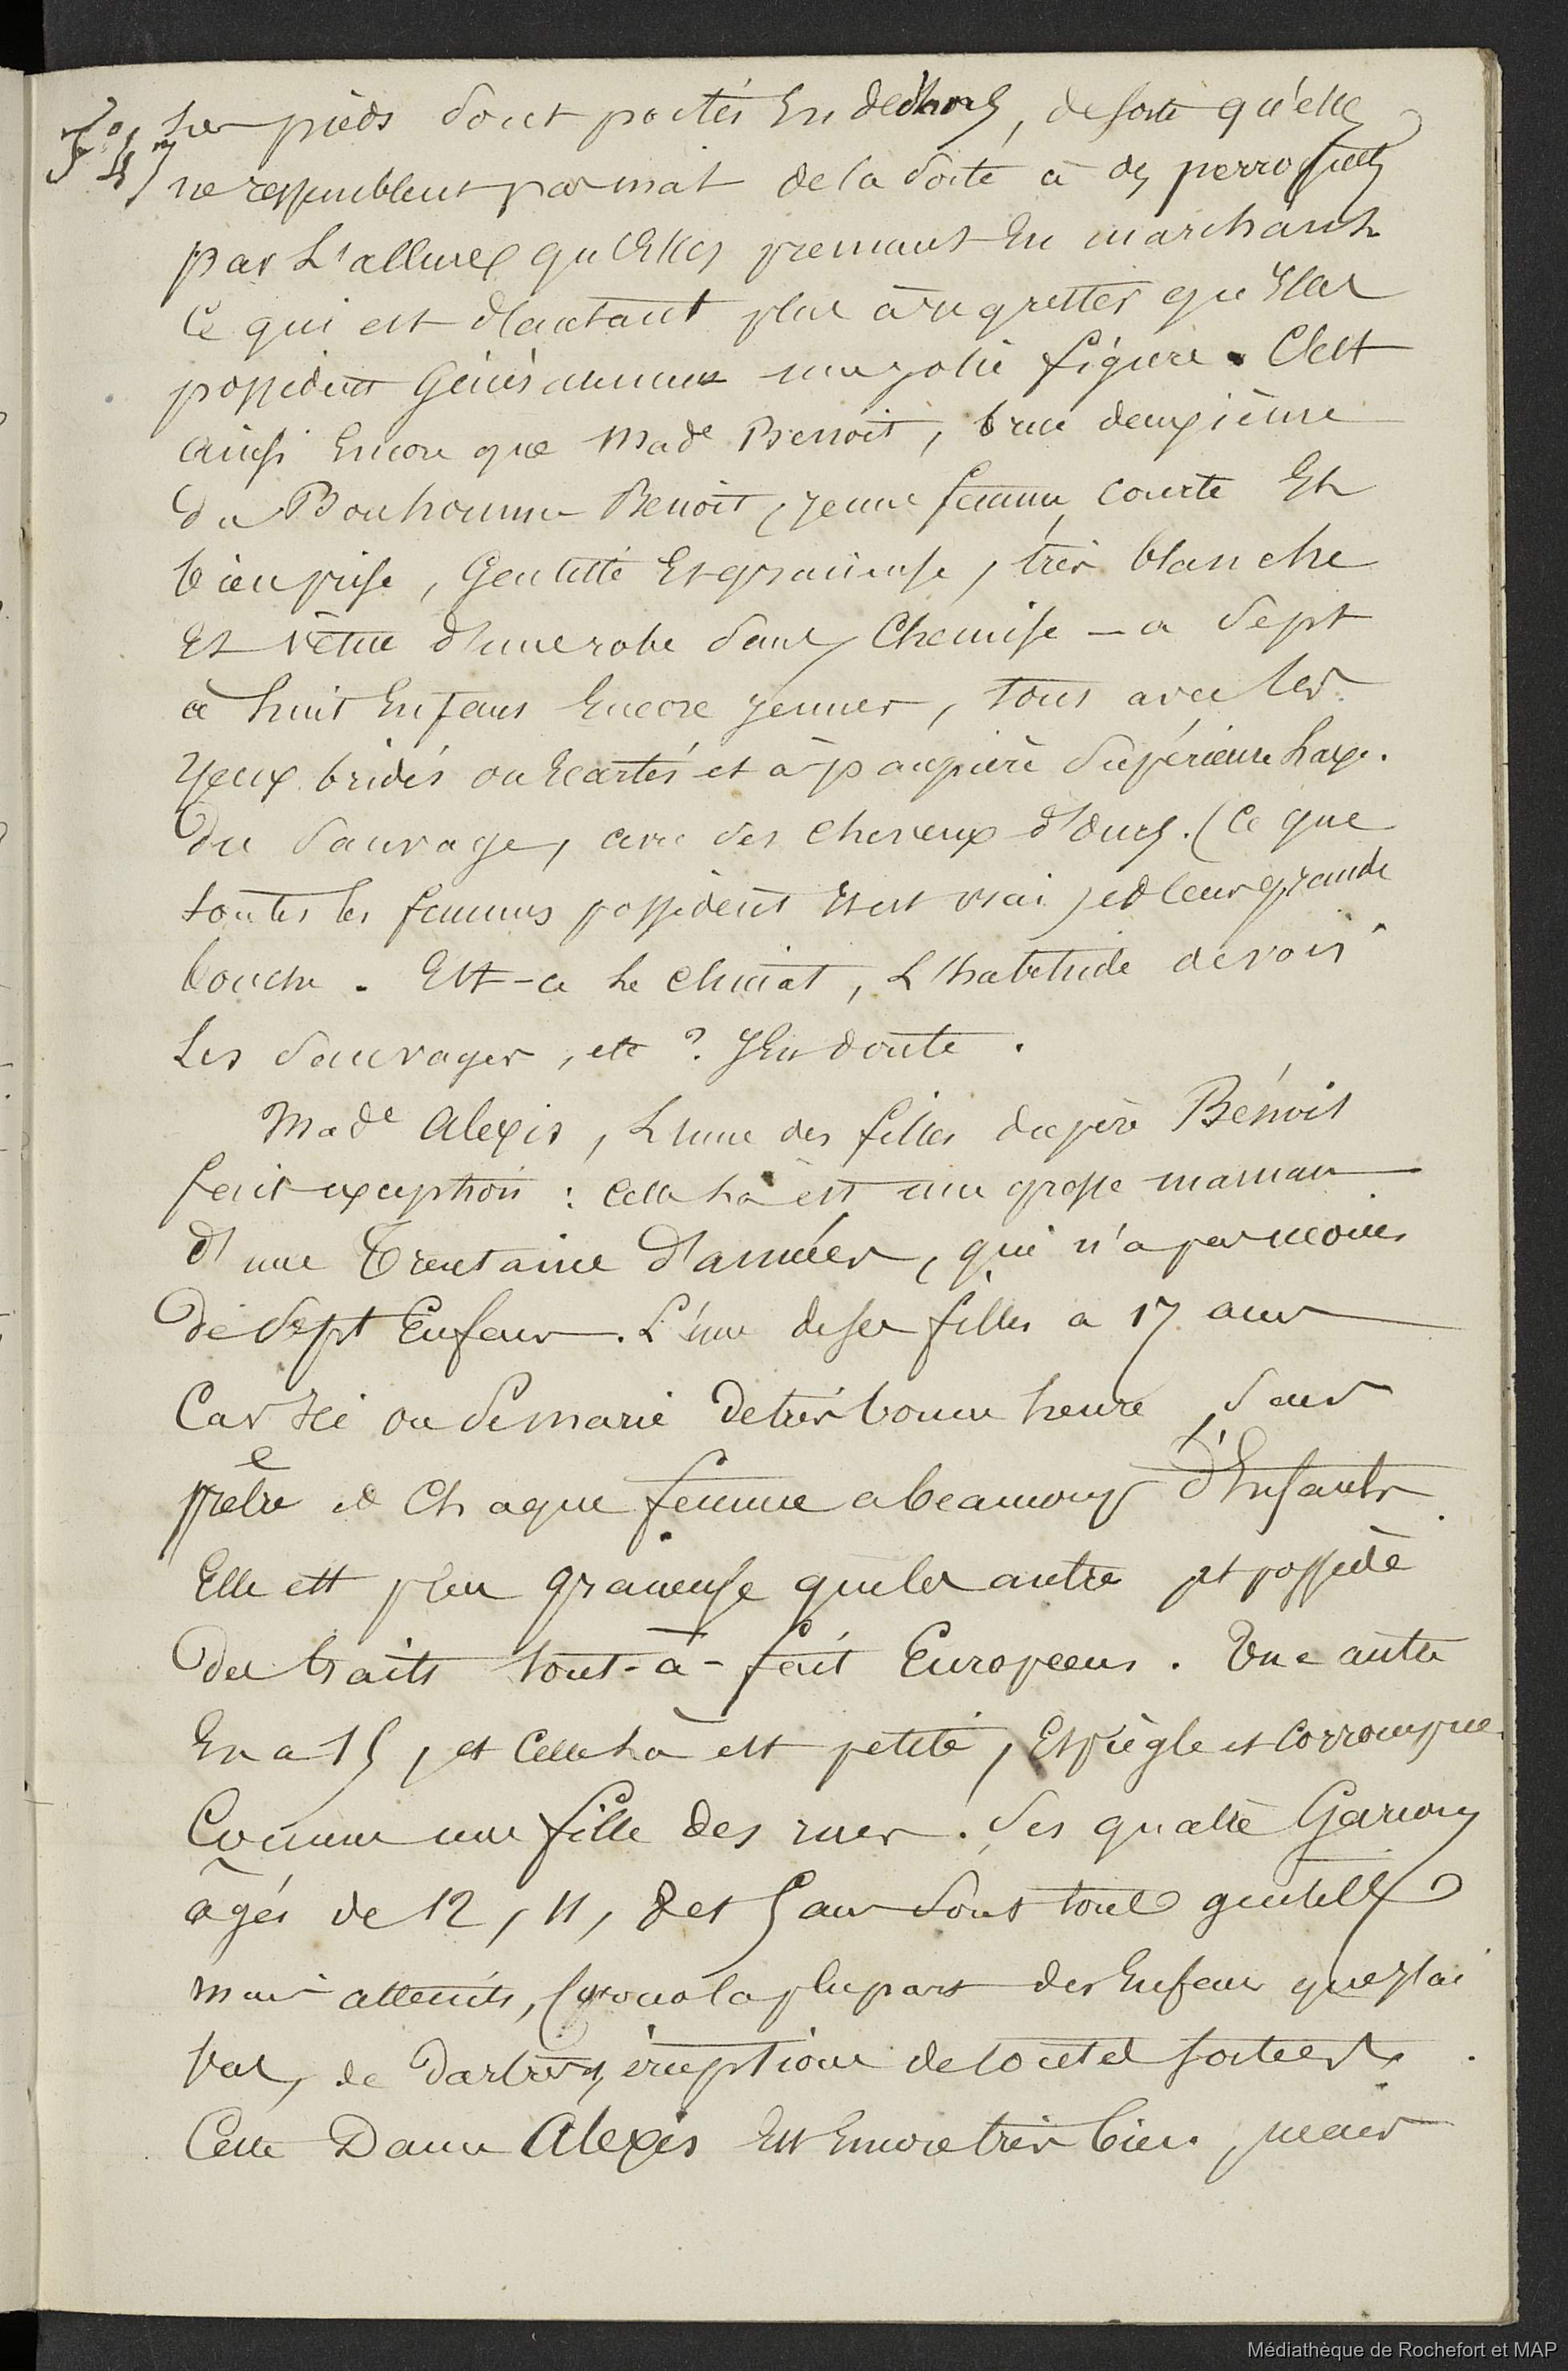 F° 47
les pieds sont portés en dehors, de sorte qu'elles
ne ressemblent pas mal de la sorte à des perroquets
par l'allure qu'elles prennent en marchant
Ce qui est d'autant plus à regretter qu'elles
possèdent généralement une jolie figure. C'est
ainsi encore que Made Benoit, bru deuxième
du Bonhomme Benoit, jeune femme, courte et
bien prise, gentille et gracieuse, très blanche
et vêtue d'une robe sans chemise – a sept
à huit enfans encore jeunes, tous avec les
yeux bridés ou écartés et à paupière supérieure large.
du sauvage, avec des cheveux d'ours. (Ce que
toutes les femmes possèdent est vrai) et leur grande
bouche. Est-ce le climat, l'habitude de voir
les sauvages, etc ? J'en doute.
Made Alexis, l'une des filles du père Bénoit
fait exception : celle là est une grosse maman
d'une trentaine d'années, qui n'a pas moins
de sept enfans. L'une de ses filles a 17 ans
Car ici on se marie de très bonne heure, sans
prêtre et chaque femme a beaucoup d'Enfants.
Elle est plus gracieuse que les autres et possède
des traits tout-à-fait Européens. Une autre
en a 15, et celle là est petite, espiègle et corrompue
Comme une fille des rues. Ses quatre Garçons
âgés de 12, 11, 8 et 5 ans sont tous gentils
mais atteints, la plupart des enfans que j'ai
vus, de dartres, éruptions de toutes sortes.
Cette Dame Alexis est encore très bien, mais
Médiathèque de Rochefort et MAP